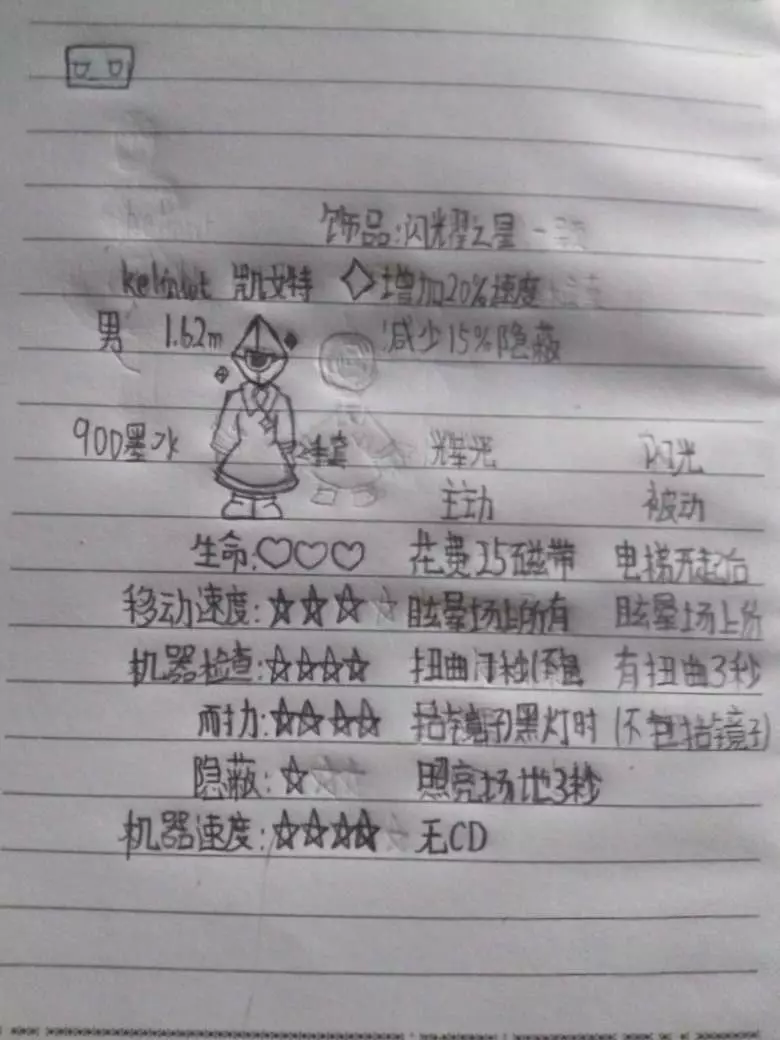 饰品:闪光耀之星
◇增加20%速度
减少15%隐蔽
男 1.62m
900墨水
辉光 闪光
主动 被动
生命:♡♡♡
移动速度:☆☆☆
机器检查:☆☆☆☆
耐力:☆☆☆☆
隐蔽:☆
机器速度:☆☆☆☆
花费25磁带
眩晕场上所有
扭曲7秒(不包
括镜子)黑灯时
照亮场地3秒
无CD
电梯开起后
眩晕场上所
有扭曲3秒
(不包括镜子)